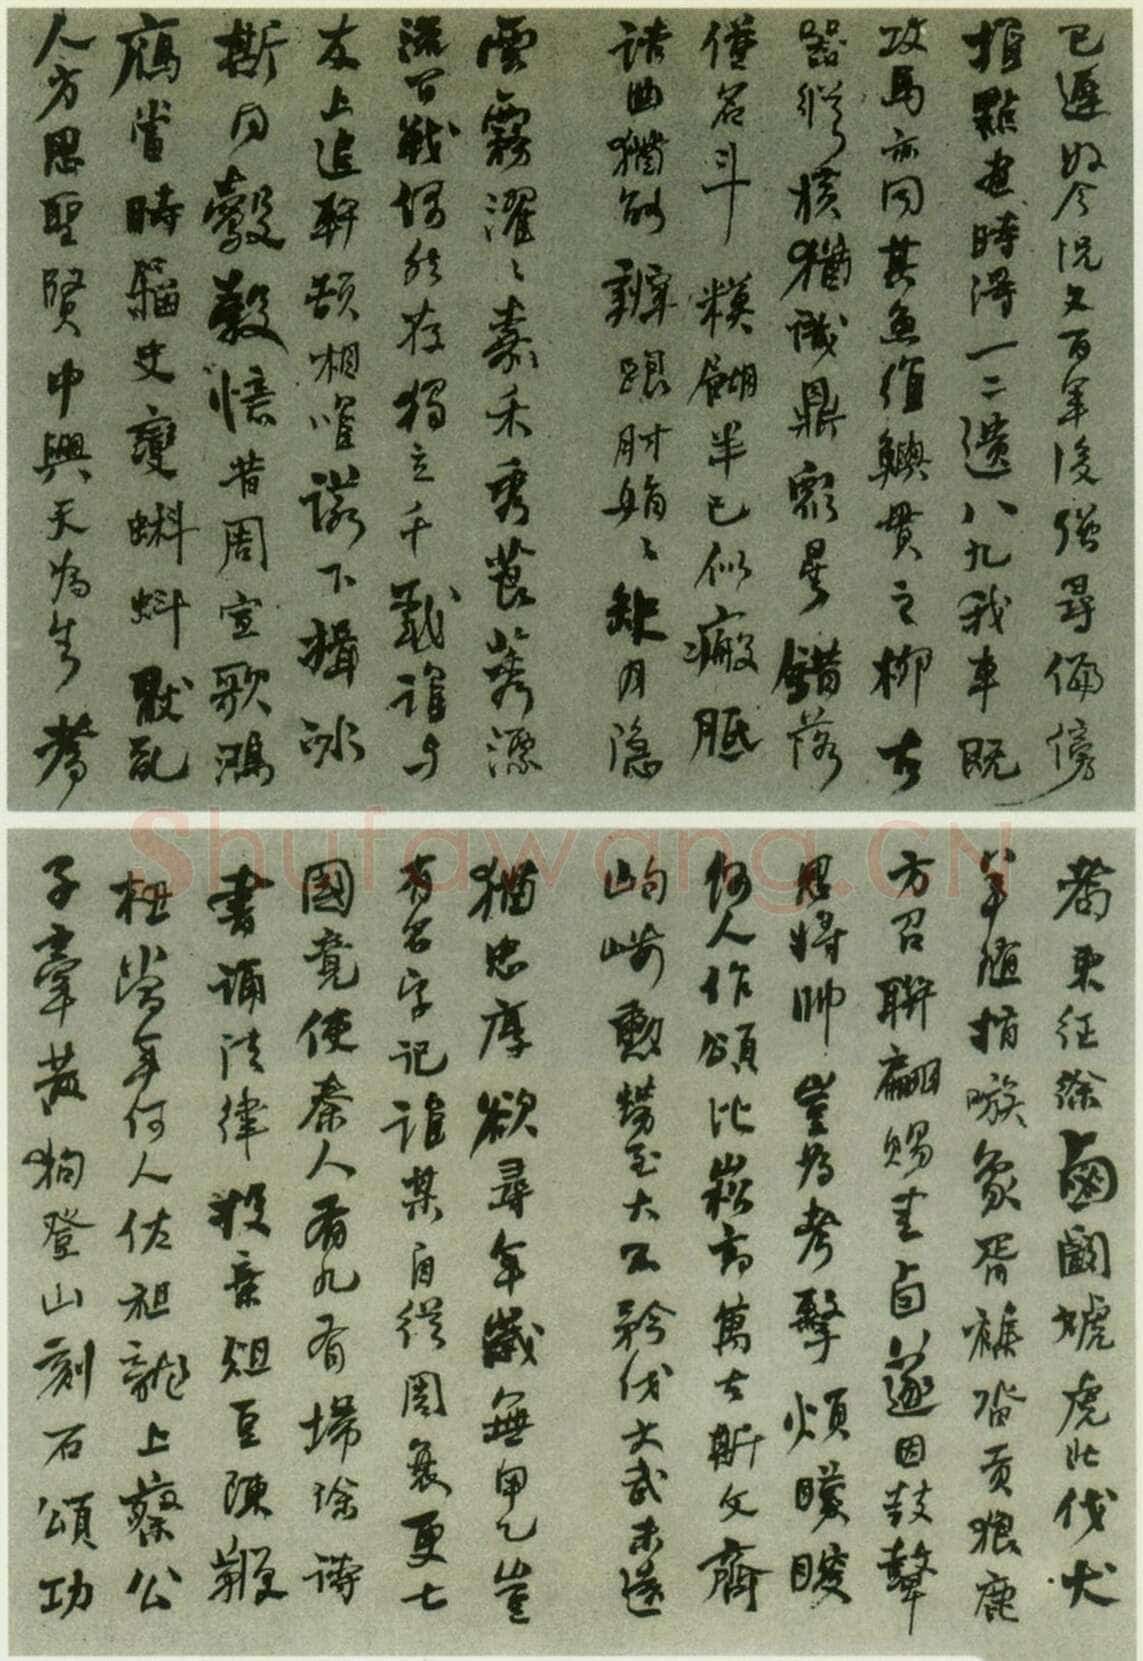 已遲如今況又百年後強尋偏傍
推點畫時得一二遺八九我車既
攻馬亦同其魚維鱮貫之柳古
器縱橫猶識鼎眾星錯落
僅名斗糢糊半已似瘢胝
詰曲猶能辯跟肘娟〻缺月隱
雲霧濯〻嘉禾秀莨莠漂
流百戰偶然存獨立千載誰与
友上追軒頡相唯諾下揖冰
斯同鷇㝅憶昔周宣歌鴻
鴈當時籀史變蝌蚪厭亂
人方思聖賢中興天為生耆
耇東征徐虜闞虓虎北伐犬
羊隨指嗾象胥雜沓貢狼鹿
方召聯翩賜圭卣遂因鼓鼙
思將帥豈為考擊煩矇瞍
何人作頌比崧高萬古斯文齊
岣嶁勳勞至大不矜伐文武未遠
猶忠厚欲尋年歲無甲乙豈
有名字記誰某自從周衰更七
國竟使秦人有九有掃除詩
書誦法律投棄俎豆陳鞭
杻當年何人佐祖龍上蔡公
子牽黃狗登山刻石頌功
Shufawang.CN